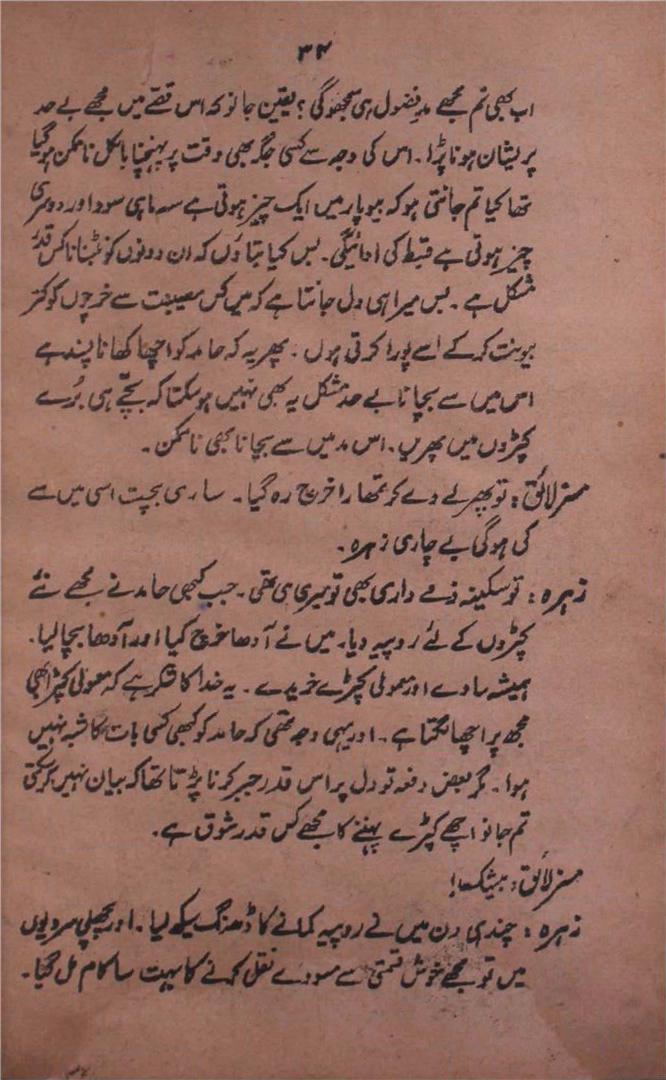 ۳۴
اب بھی تم مجھے مد فضول ہی سمجھوگی؟ یقین جانو کہ اس قصے میں مجھے بے حد
پریشان ہونا پڑا۔ اس کی وجہ سے کسی جگہ بھی وقت پر پہنچنا بالکل ناممکن ہوگیا
تھا کیا تم جانتی ہو کہ بیوپار میں ایک چیز ہوتی ہے سہ ماہی سود اور دوسری
چیز ہوتی ہے قسط کی ادائیگی۔ بس کیا بتاؤں کہ ان دونوں کو نبٹنا ناکس قدر
مشکل ہے۔ بس میرا ہی دل جانتا ہے کہ میں کس مصیبت سے خرچوں کو کتر
بیونت کرکے اسے پورا کرتی ہوں۔ پھر یہ کہ حامد کو اچھا کھانا پسند ہے
اس میں سے بچانا بے حد مشکل یہ بھی نہیں ہو سکتا کہ بچے ہی بُرے
کپڑوں میں پھریں۔ اس مد میں سے بچانا بھی ناممکن۔
مسز لائق: تو پھر لے دے کر تمھارا خرچ رہ گیا۔ ساری بچت اسی میں سے
کی ہوگی بے چاری زہرہ۔
زہرہ: تو سکینہ ذمے داری بھی تو میری ہی تھی۔ جب کبھی حامد نے مجھے نئے
کپڑوں کے لئے روپیہ دیا۔ میں نے آدھا خرچ کیا اور آدھا بچا لیا۔
ہمیشہ سادے اور معمولی کپڑے خریدے۔ یہ خدا کا شکر ہے کہ معمولی کپڑا بھی
مجھ پر اچھا لگتا ہے۔ اور یہی وجہ تھی کہ حامد کو کبھی کسی بات کا شبہ نہیں
ہوا۔ مگر بعض دفعہ تو دل پر اس قدر جبر کرنا پڑتا تھا کہ بیان نہیں کرسکتی
تم جانو اچھے کپڑے پہننے کا مجھے کس قدر شوق ہے۔
مسز لائق: بیشک!
زہرہ: چند ہی دن میں نے روپیہ کمانے کا ڈھنگ سیکھ لیا۔ اور پچھلی سردیوں
میں تو مجھے خوش قسمتی سے مسودے نقل کرنے کا بہت سا کام مل گیا۔